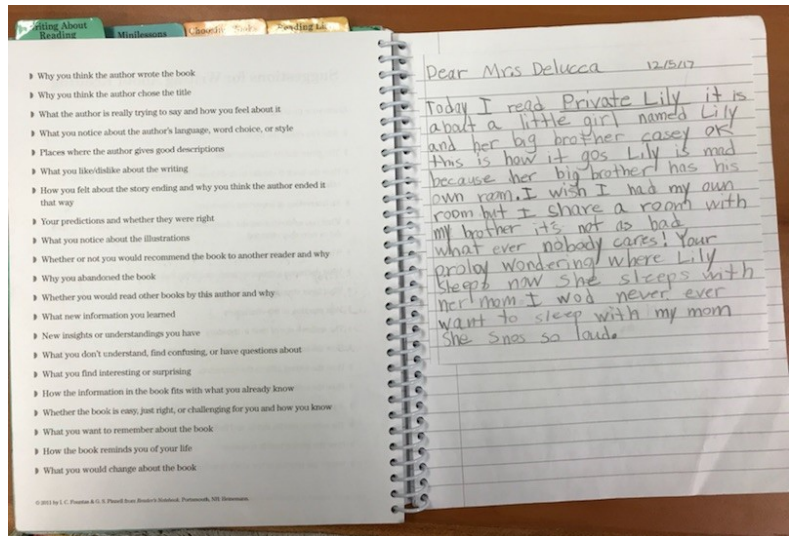 Writing About
Reading
Minilessons
Reading Li
Why you think the author wrote the book
Why you think the author chose the title
What the author is really trying to say and how you feel about it
What you notice about the author's language, word choice, or style
Places where the author gives good descriptions
What you like/dislike about the writing
How you felt about the story ending and why you think the author ended it
that way
Your predictions and whether they were right
What you notice about the illustrations
Whether or not you would recommend the book to another reader and why
Why you abandoned the book
Whether you would read other books by this author and why
What new information you learned
New insights or understandings you have
What you don't understand, find confusing, or have questions about
What you find interesting or surprising
How the information in the book fits with what you already know
Whether the book is easy, just right, or challenging for you and how you know
What you want to remember about the book
How the book reminds you of your life
What you would change about the book
© 2011 by I. C. Fountas & G. S. Pinnell from Reader's Notebook. Portsmouth, NH: Heinemann.
Dear Mrs Delucca 12/5/17
Today I read Private Lily it is
about a little girl named Lily
and her big brother casey OK
this is how it gos Lily is mad
because her big brother has his
own room. I wish I had my own
room but I share a room with
my brother it's not as bad
what ever nobody cares! Your
probly wondering where Lily
sleeps now she sleeps with
her mom I wod never ever
want to sleep with my mom
she snos so loud.